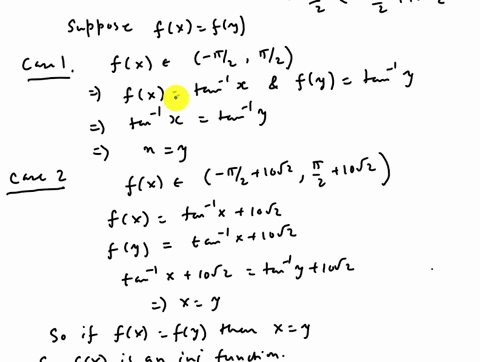 Suppose f(x) = f(y)
Case 1. f(x) ∈ (-π/2, π/2)
=) f(x) = tan⁻¹ x & f(y) = tan⁻¹ y
=) tan⁻¹ x = tan⁻¹ y
=) x = y
Case 2 f(x) ∈ (-π/2 + 10√2, π/2 + 10√2)
f(x) = tan⁻¹ x + 10√2
f(y) = tan⁻¹ x + 10√2
tan⁻¹ x + 10√2 = tan⁻¹ y + 10√2
=) x = y
So if f(x) = f(y) then x = y
f(x) is an inj function.